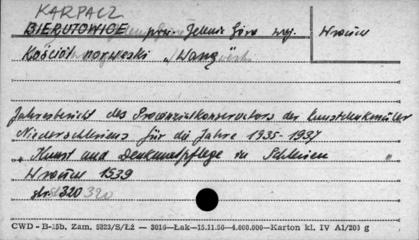 KARPACZ
BIERUTOWICE pow. Jelenia Góra woj. Wrocław
Kościół norweski "Wang"
Jahresbericht des Provinzialkonservators der Kunstdenkmäler
Niederschlesiens für die Jahre 1935-1937
"Kunst und Denkmalpflege in Schlesien"
Wrocław 1539
str 320 320
CWD - B-15b, Zam. 5323/S/Łż — 3016—Łak—15.11.56—4.000.000—Karton kl. IV A1/200 g